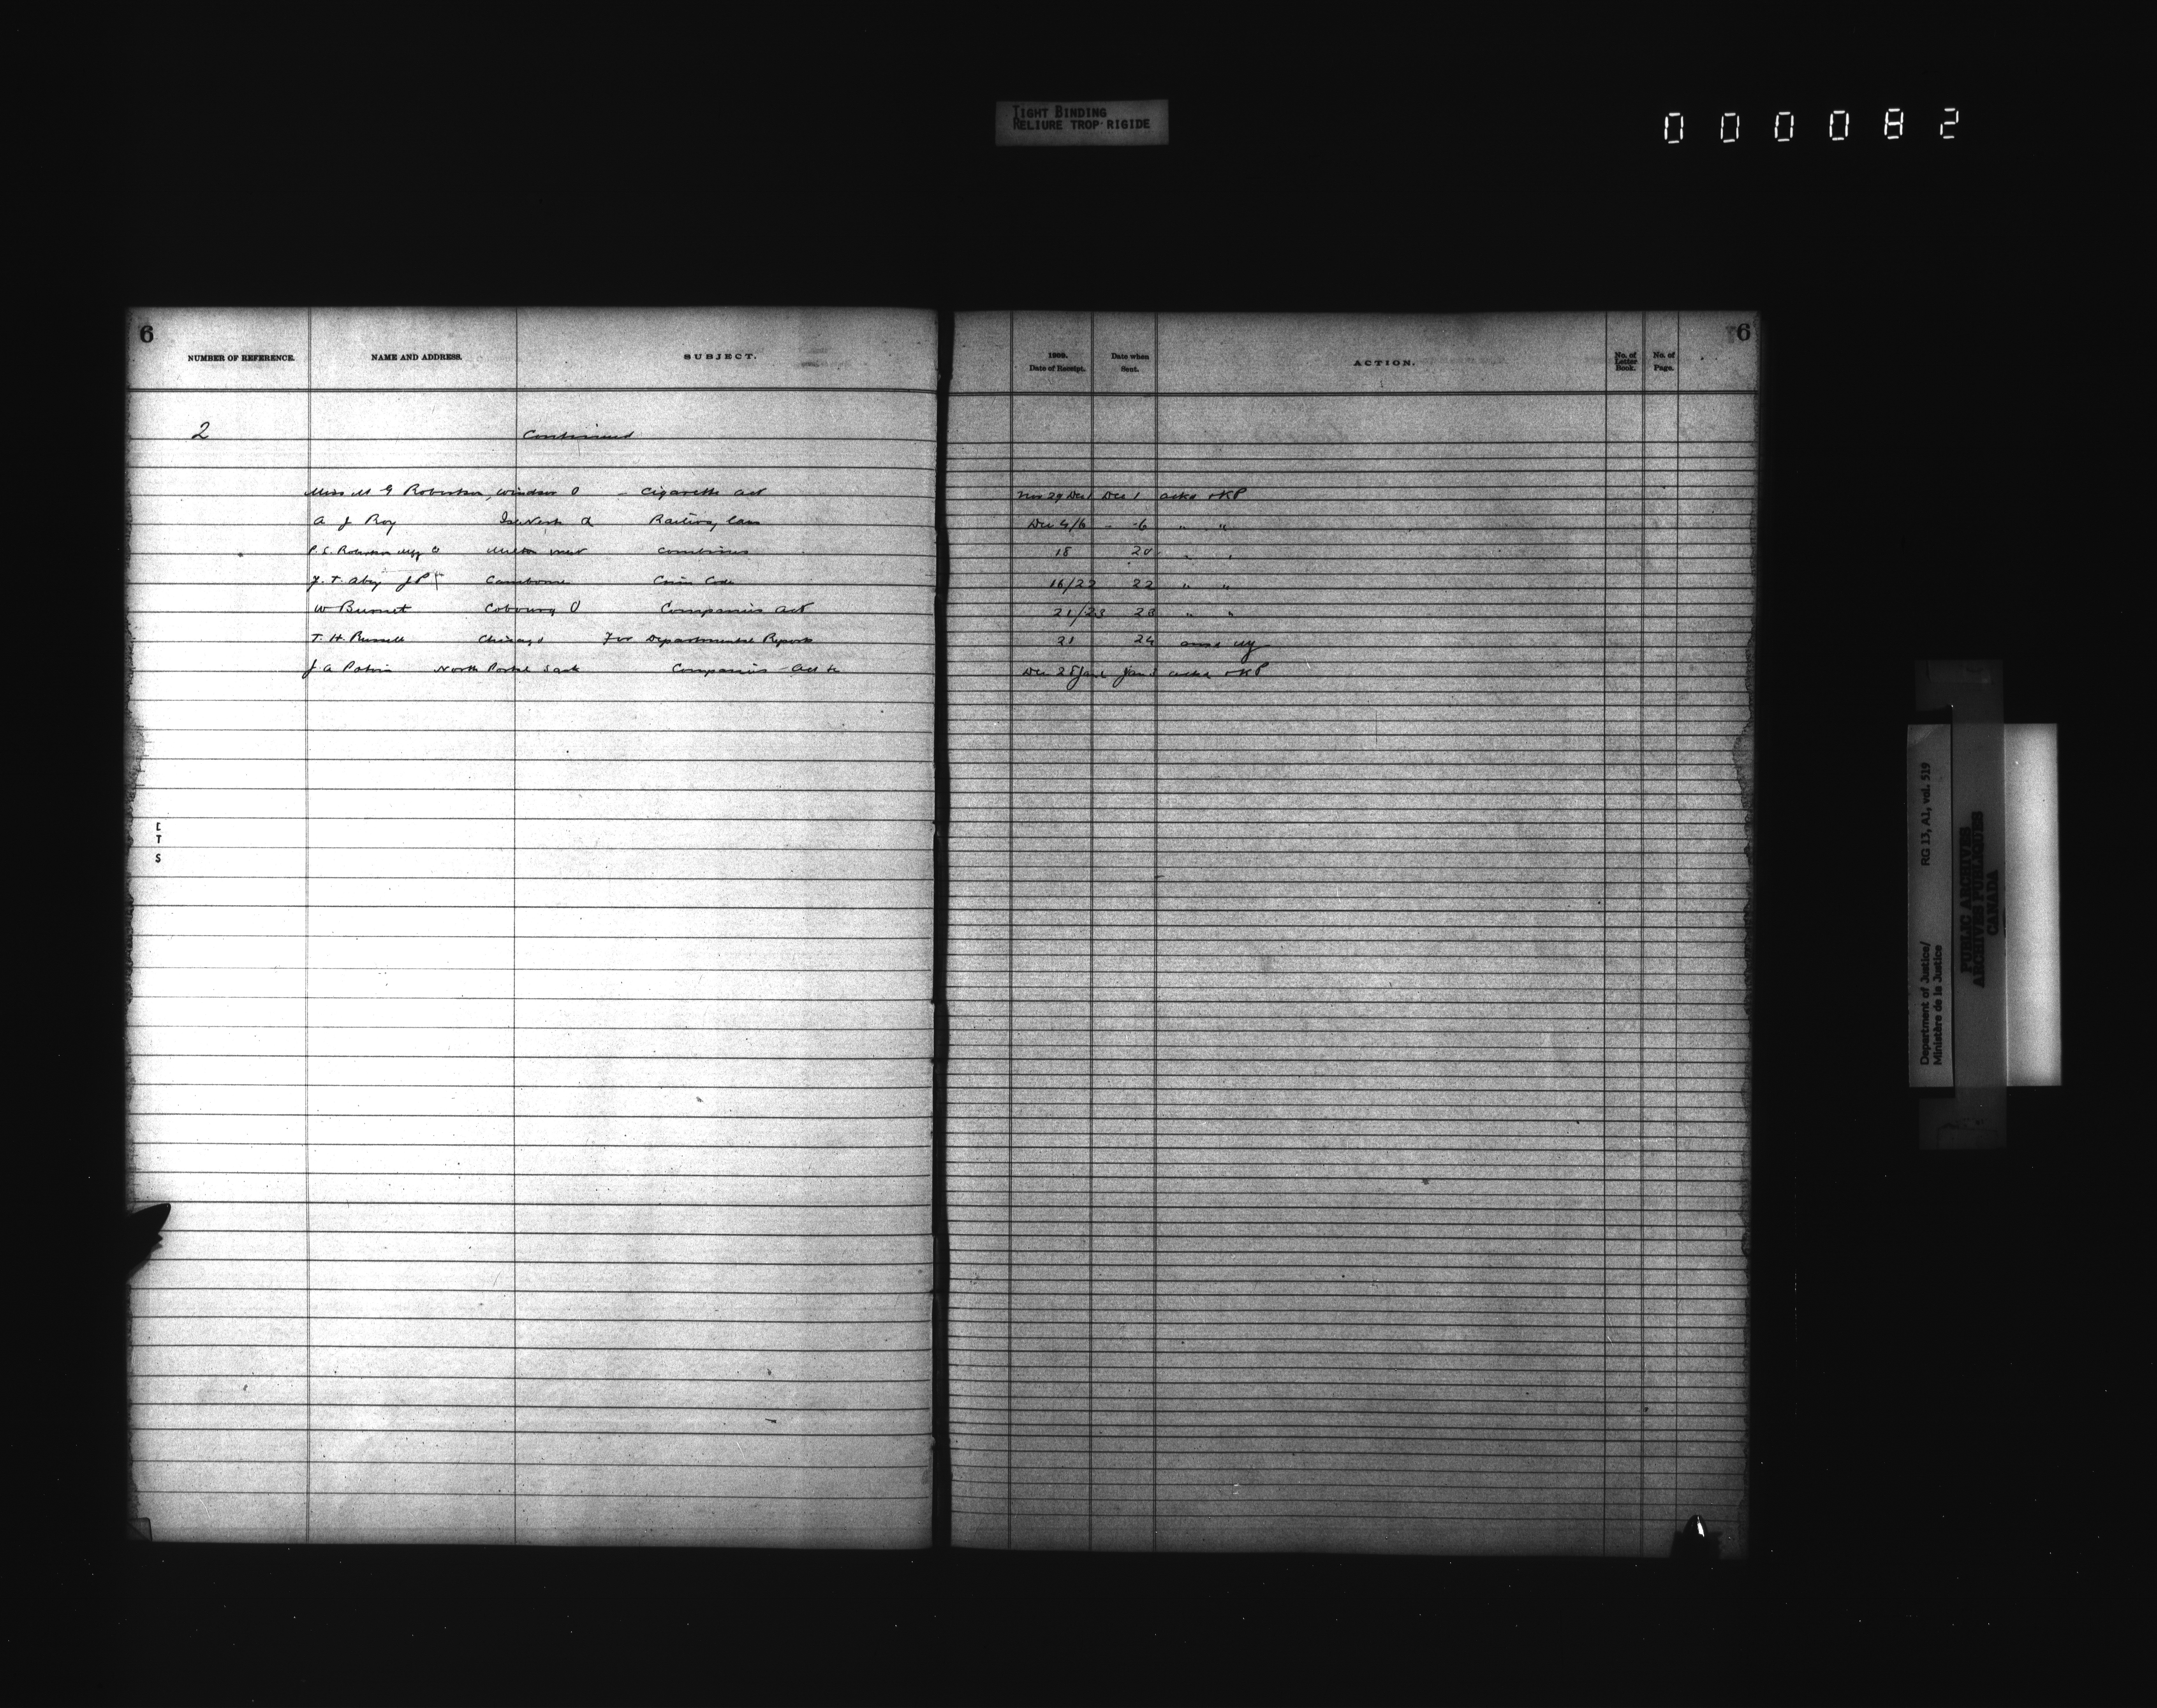 TIGHT BINDING
RELIURE TROP RIGIDE
000082
6
6
NUMBER OF REFERENCE. NAME AND ADDRESS. SUBJECT. 1909. Date of Receipt. Date when Sent. ACTION. No. of Letter Book. No. of Page.
2 Continued
Miss M G Robertson, Windsor O - Cigarette act Nov 29 Dec 1 Dec 1 ackd & KP
A J Roy Railway law Dec 4/6 - 6 " "
P. S. Robertson O Milton West Combines 18 20 " "
J. T. JP Camborne Crim Code 16/22 22 " "
W Burnet Cobourg O Companies act 21/23 23 " "
T. H. Russell Chicago For Departmental Reports 21 24
J A North Portal Sask Companies Act Dec 28 Jan Jan ackd & KP
E
T
S
Department of Justice/ RG 13, A1, vol. 519
Ministère de la Justice
PUBLIC ARCHIVES
ARCHIVES PUBLIQUES
CANADA